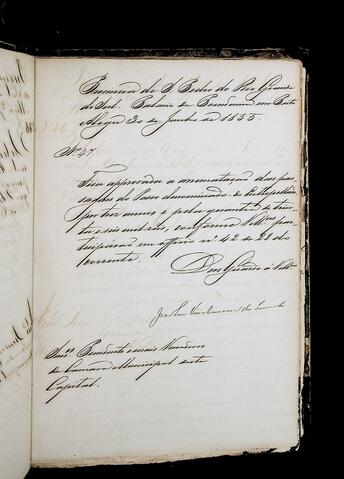 Provincia de S. Pedro do Rio Grande
do Sul. Palacio da Presidencia em Porto
Alegre 30 de Junho de 1855.
Nº 47.
Fica approvada a arrematação das pas
sagens do Passo denominado de
por tres annos e pela quantia de trin
ta e seis mil reis, conforme Vmces par
ticiparão em officio nº 42 de 28 do
corrente.
Deos Guarde a Vmces
Snres Presidente e mais Vereadores
da Camara Municipal desta
Capital.